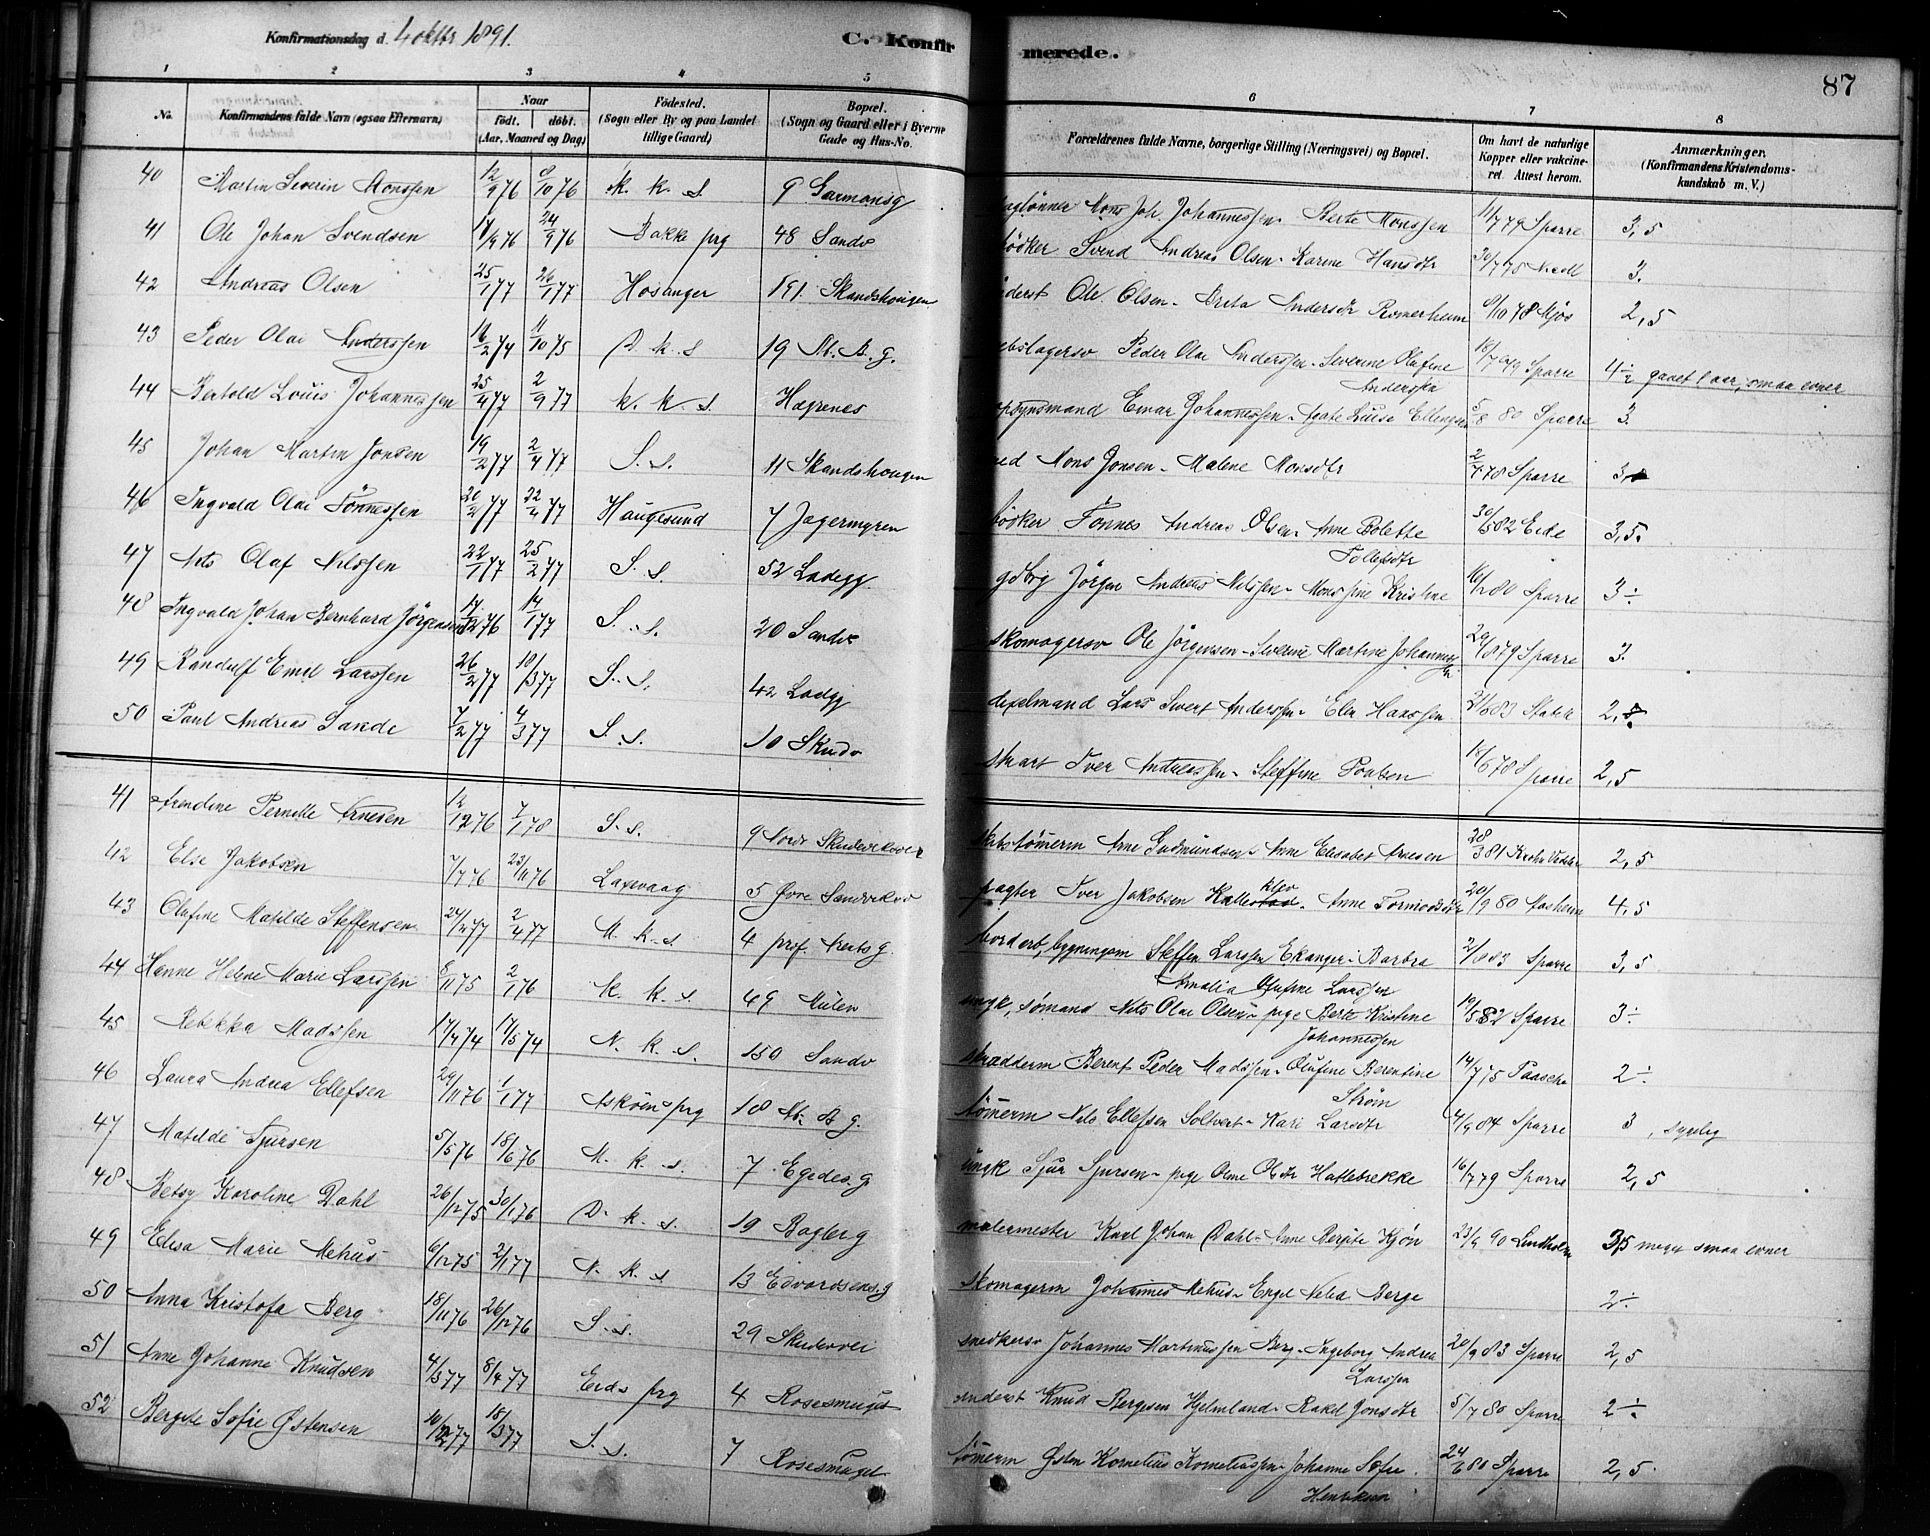 Konfirmationsdag d. 4 oktbr 1891.
C. Konfirmerede.
87
1 2 3 4 5 6 7 8
No.
Konfirmandens fulde Navn (ogsaa Efternavn)
Naar
født. døbt.
(Aar, Maaned og Dag)
Fødested.
(Sogn eller By og paa Landet
tillige Gaard)
Bopæl.
(Sogn og Gaard eller i Byerne
Gade og Hus-No.
Forældrenes fulde Navne, borgerlige Stilling (Næringsvei) og Bopæl.
Om havt de naturlige
Kopper eller vakcine-
ret. Attest herom.
Anmærkninger.
(Konfirmandens Kristendoms-
kundskab m. V.)
40 Martin Severin Monssen 12/9 76 8/10 76 K. k. s 9 Garmansg Mons Joh. Johannessen - Berte Monssen 11/7 79 Sparre 3,5
41 Ole Johan Svendsen 17/9 76 24/9 76 Bakke prg 48 Sandv bödker Svend Andreas Olsen - Karine Hansdtr 3.
42 Andreas Olsen 25/1 77 26/1 77 Hosanger 191 Skandshougen Ole Olsen - Brita Andersdtr Romerheim 8/10 78 Mjös 2,5
43 Peder Olai Anderssen 11/10 75 D k. s 19 St. A. g. Peder Olai Anderssen - Severine Olufine
Anderssen Sparre 4 1/2 gaaet 1 aar, smaa evner
44 Bertold Louis Johannessen 25/4 77 2/9 77 K. k. s. Hegrenes opsynsmand Einar Johannessen - Agate Luise Ellingsen 5/8 80 Sparre 3.
45 Johan Martin Jonsen 19/2 77 2/4 77 S. s. 11 Skandshougen Mons Jonsen - Malene Monsdtr 2/7 78 Sparre 3,
46 Ingvald Olai Tönnessen 20/2 77 22/4 77 Haugesund 7 Jægermyren bödker Tönnes Andreas Olsen - Anne Bolette
Tollefsdtr 30/5 82 Eide 3,5.
47 Nils Olaf Nilssen 22/1 77 25/2 77 S. s. 52 Ladegg Jörgen Andreas Nilssen - Monssine Kristine 80 Sparre 3 ÷
48 Ingvald Johan Bernhard Jörgensen 17/12 76 14/1 77 S. s. 20 Sandv skomagersv Ole Jörgensen - Severine Martine Johannes
29/8 79 Sparre 3.
49 Randulf Emil Larssen 26/2 77 18/3 77 S. s. 42 Ladgg dexelmand Lars Sivert Anderssen - Elen Hanssen 83 2,
50 Paul Andreas Sande 7/2 77 4/3 77 S. s. 10 Skudv Iver Andreassen - Steffine Poulsen 18/6 78 Sparre 2,5
41 Arendine Pernille Arnesen 12/12 76 7/1 78 S. s. 9 Nordr Skudeviksvei skibstömerm Arne Gudmundsen - Anne Elisabet Arnesen 28/3 81 2,5
42 Else Jakobsen 7/7 76 23/11 76 Laxevaag 5 Övre Sandviksv pagter Iver Jakobsen Kalle klev - Anne Tormodsdtr 20/9 80 4,5
43 Olufine Matilde Steffensen 24/2 77 2/4 77 M. k. s 4 prof. Arents g. Steffen Larssen Ekanger - Barbra
Amalia Olufine Larssen 83 Sparre 3,5
44 Hanne Helene Marie Larssen 8/11 75 2/1 76 K. k. s. 49 Mulen ungk, sømand Nils Olai Olsen - pige Berte Kristine
Johannessen 19/5 82 Sparre 3 ÷
45 Rebekka Madssen 17/4 74 17/5 74 N. k. s. 150 Sandv skrædderm Berent Peder Madssen - Olufine Berentine
Ström 14/7 75 Paasche 2 ÷
46 Laura Andrea Ellefsen 29/11 76 1/1 77 Askøens prg 18 St. A g. tömerm Nils Ellefsen Solvert - Kari Larsdtr 4/9 84 Sparre 3, sygelig
47 Matilde Sjursen 5/5 76 18/6 76 M. k. s. 7 Egedes. g ungk Sjur Sjursen - pige Olsdtr Hattebrekke 16/7 79 Sparre 2,5
48 Betsy Karoline Dahl 26/12 75 30/1 76 D. k. s. 19 Baglerg malermester Karl Johan Dahl - Anne Bergite Kjön 23/9 90 Lindholm 3,5 meget smaa evner
49 Elisa Marie Mehus 6/12 75 2/1 77 N. k. s 13 Edvardsens. g skomagerm Johannes Mehus - Engel Berge 2 ÷
50 Anna Kristofa Berg 18/11 76 26/12 76 S. s. 29 Skudevvei snedkersv Johannes Martinussen Berg - Ingeborg Andrea
Larssen 20/9 83 Sparre 2,5
51 Anne Johanne Knudsen 4/3 77 8/4 77 Eids prg 4 Rosesmuget Knud Bergesen Hjelmland - Rakel Jonsdtr 5/7 80 Sparre 2 ÷
52 Bergite Sofie Østensen 10/2 77 18/3 77 S. s. 7 Rosesmuget tömerm Østen Kornelius Korneliussen - Johanne Sofie
Henriksen 24/6 80 Sparre 2,5.